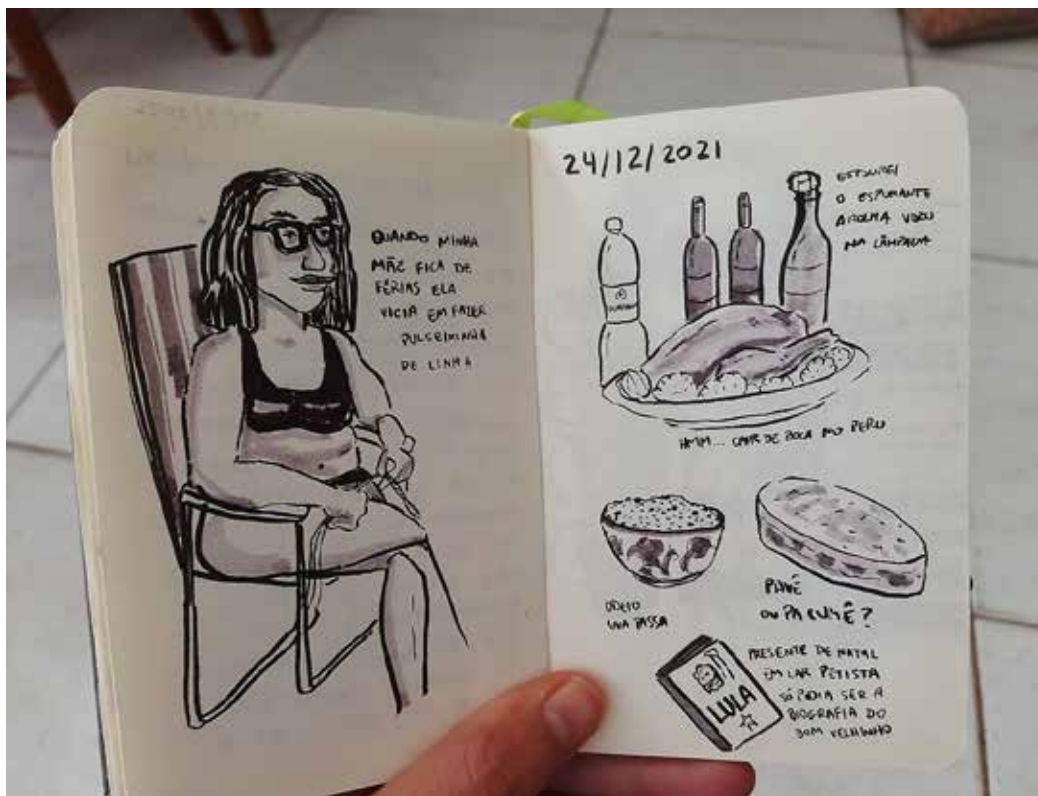 QUANDO MINHA
MÃE FICA DE
FÉRIAS ELA
VICIA EM FAZER
PULSEIRINHA
DE LINHA
24/12/2021
ESTOUREI
O ESPUMANTE
A ROLHA VOOU
NA LÂMPADA
HMM... CAIR DE BOCA NO PERU
ODEIO
UVA PASSA
PAVÊ
OU PACUMÊ?
PRESENTE DE NATAL
EM LAR PETISTA
SÓ PODIA SER A
BIOGRAFIA DO
BOM VELHINHO
LULA